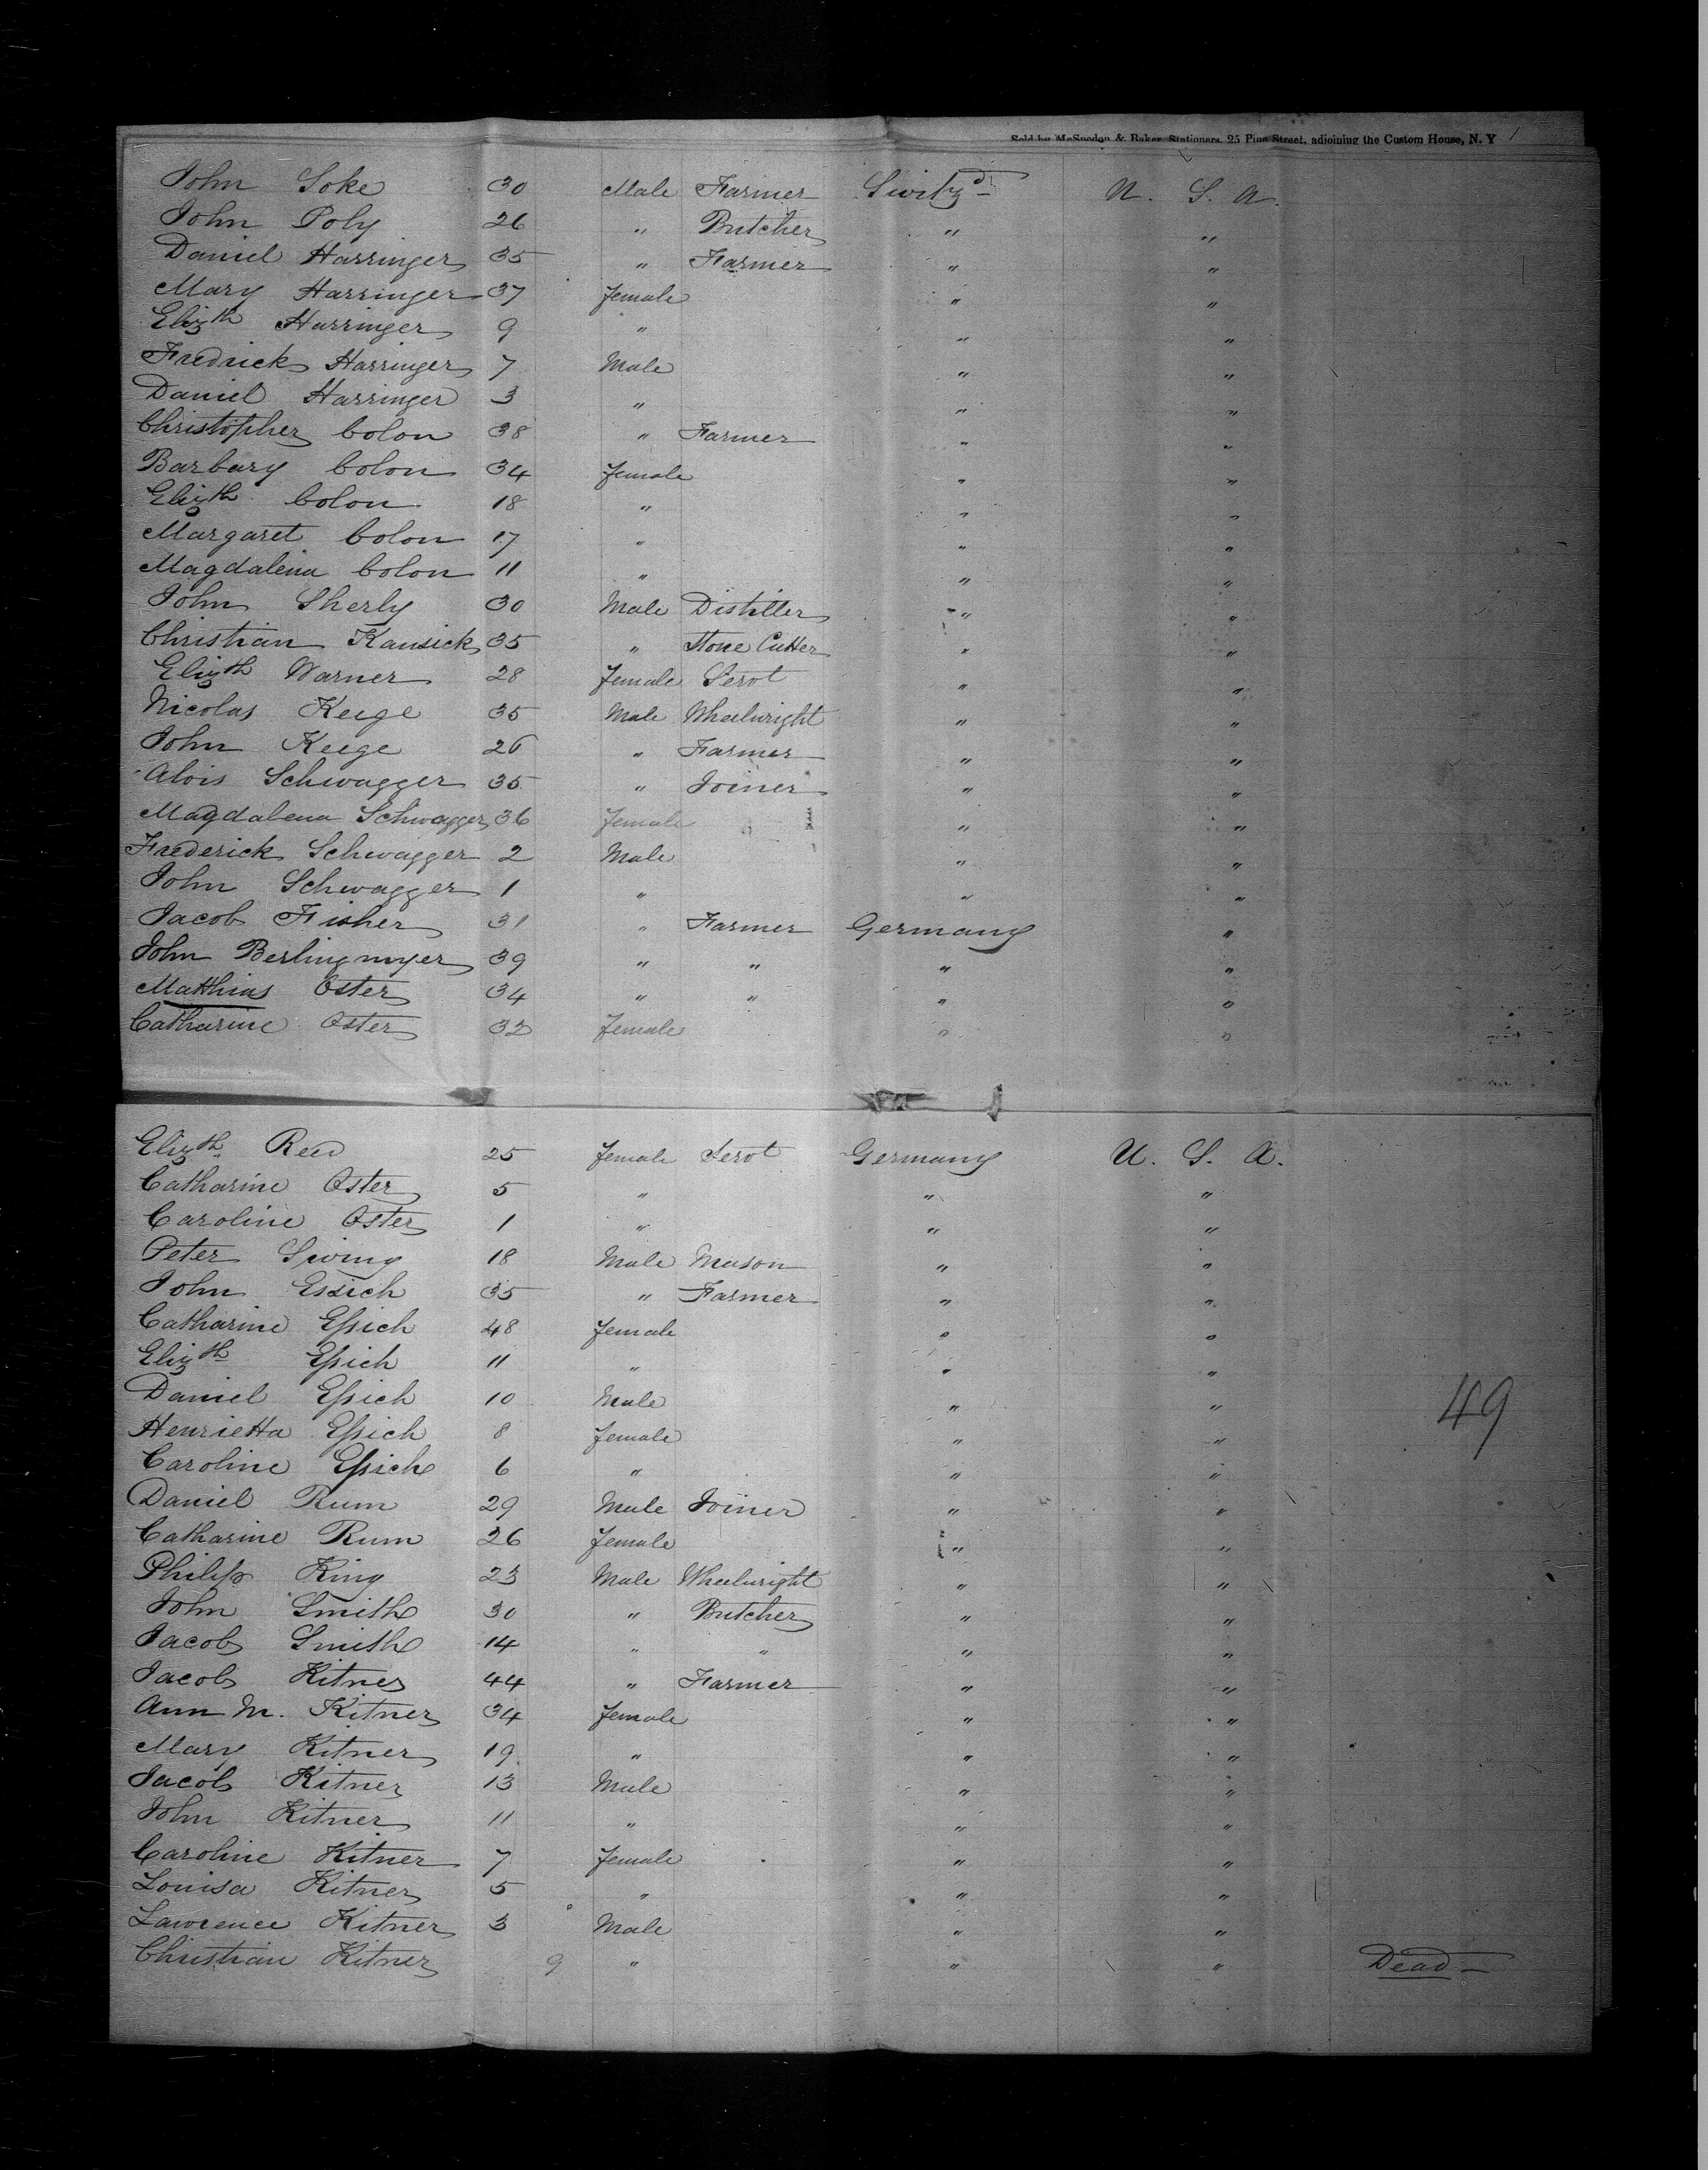 Sold by McSpedon & Baker, Stationers, 25 Pine Street, adjoining the Custom House, N. Y
John Soke 30 Male Farmer Switzd U. S. A.
John Poly 26 " Butcher " "
Daniel Harringer 35 " Farmer " "
Mary Harringer 37 female " "
Elizth Harringer 9 " " "
Fredrick Harringer 7 Male " "
Daniel Harringer 3 " " "
Christopher Colon 38 " Farmer " "
Barbary Colon 34 female " "
Elizth Colon 18 " " "
Margaret Colon 17 " " "
Magdalena Colon 11 " " "
John Sherly 30 Male Distiller " "
Christian Kausick 35 " Stone Cutter " "
Elizth Warner 28 female Servt " "
Nicolas Keege 35 Male Wheelwright " "
John Keege 26 " Farmer " "
Alois Schwagger 35 " Joiner " "
Magdalena Schwagger 36 female " "
Frederick Schwagger 2 Male " "
John Schwagger 1 " " "
Jacob Fisher 31 " Farmer Germany "
John Berlingmyer 39 " " " "
Matthias Oster 34 " " " "
Catharine Oster 32 female " "
Elizth Reed 25 female Servt Germany U. S. A.
Catharine Oster 5 " " "
Caroline Oster 1 " " "
Peter Swing 18 Male Mason " "
John Essich 35 " Farmer " "
Catharine Essich 48 female " "
Elizth Essich 11 " " "
Daniel Essich 10 Male " "
49
Henrietta Essich 8 female " "
Caroline Essich 6 " " "
Daniel Rum 29 Male Joiner " "
Catharine Rum 26 female " "
Philip King 23 Male Wheelwright " "
John Smith 30 " Butcher " "
Jacob Smith 14 " " " "
Jacob Kitner 44 " Farmer " "
Ann M. Kitner 34 female " "
Mary Kitner 19 " " "
Jacob Kitner 13 Male " "
John Kitner 11 " " "
Caroline Kitner 7 female " "
Louisa Kitner 5 " " "
Lawrence Kitner 3 Male " "
Christian Kitner 9 " " " Dead